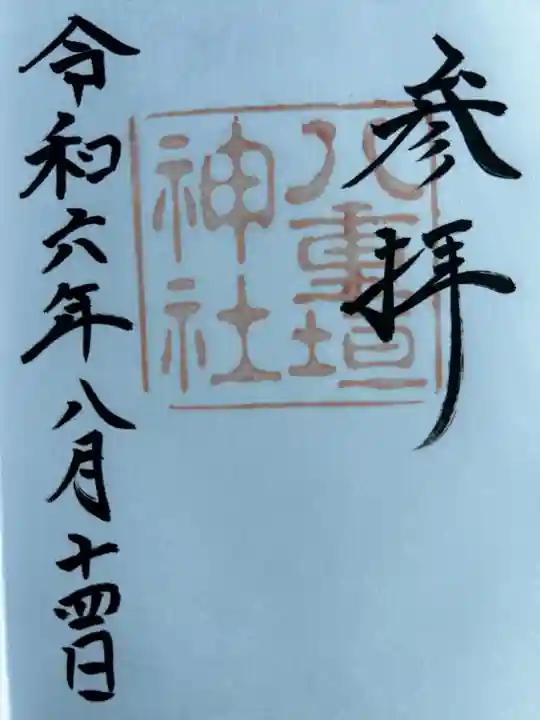 参拝
八重垣
神社
令和六年八月十四日